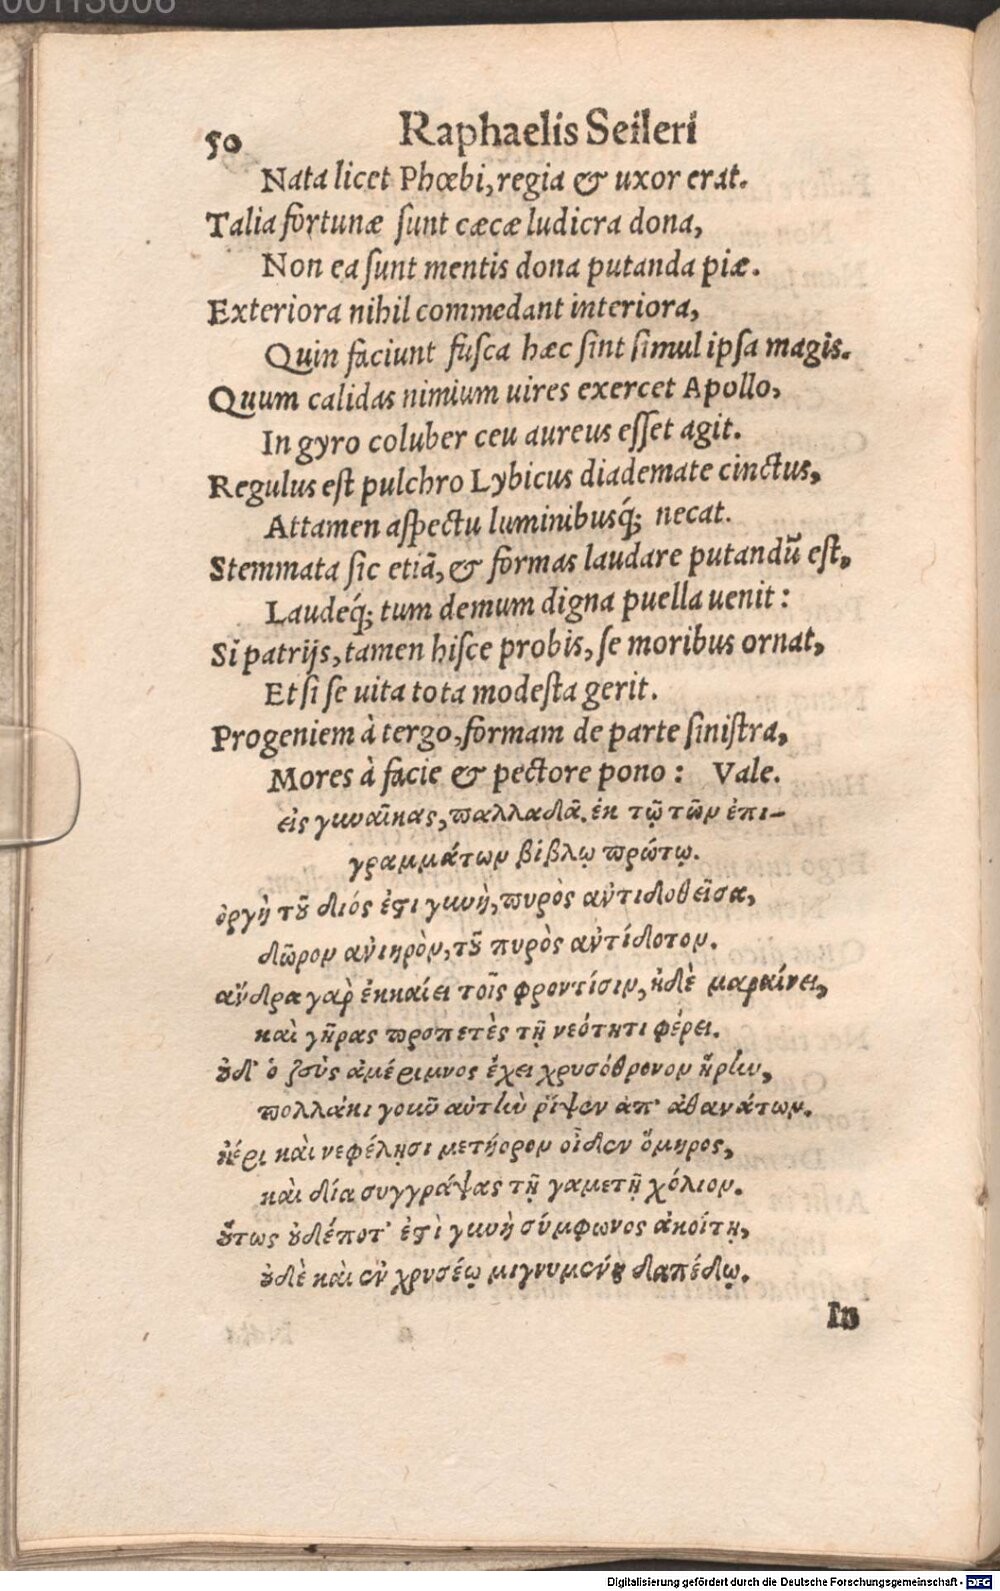 00113006
50 Raphaelis Seileri
Nata licet Phœbi, regia & uxor erat.
Talia fortunæ sunt cæcæ ludicra dona,
Non ea sunt mentis dona putanda piæ.
Exteriora nihil commedant interiora,
Quin faciunt fusca hæc sint simul ipsa magis.
Quum calidas nimium uires exercet Apollo,
In gyro coluber ceu aureus esset agit.
Regulus est pulchro Lybicus diademate cinctus,
Attamen aspectu luminibusq́; necat.
Stemmata sic etiã, & formas laudare putandũ est,
Laudeq́; tum demum digna puella uenit:
Si patrijs, tamen hisce probis, se moribus ornat,
Et si se uita tota modesta gerit.
Progeniem à tergo, formam de parte sinistra,
Mores à facie & pectore pono: Vale.
εἰς γυναῖκας, παλλαδᾶ. ἐκ τῷ τῶν ἐπι-
γραμμάτων βίβλῳ πρώτῳ.
ὀργὴ τοῦ διός ἐστι γυνὴ, πυρὸς ἀντιδοθεῖσα,
δῶρον ἀνιηρὸν, τοῦ πυρὸς ἀντίδοτον.
ἄνδρα γὰρ ἐκκαίει τοῖς φροντίσιν, ἠδὲ μαραίνει,
καὶ γῆρας προπετὲς τῇ νεότητι φέρει.
οὐδ' ὁ ζεὺς ἀμέριμνος ἔχει χρυσόθρονον ἥρην,
πολλάκι γοῦν αὐτὴν ῥίψεν ἀπ' ἀθανάτων.
ἠέρι καὶ νεφέλῃσι μετήορον οἶδεν ὅμηρος,
καὶ δία συγγράψας τῇ γαμετῇ χόλιον.
οὕτως οὐδέποτ' ἐστὶ γυνὴ σύμφωνος ἀκοίτῃ,
οὐδὲ καὶ ἐν χρυσέῳ μιγνυμένου δαπέδῳ.
In
Digitalisierung gefördert durch die Deutsche Forschungsgemeinschaft - DFG